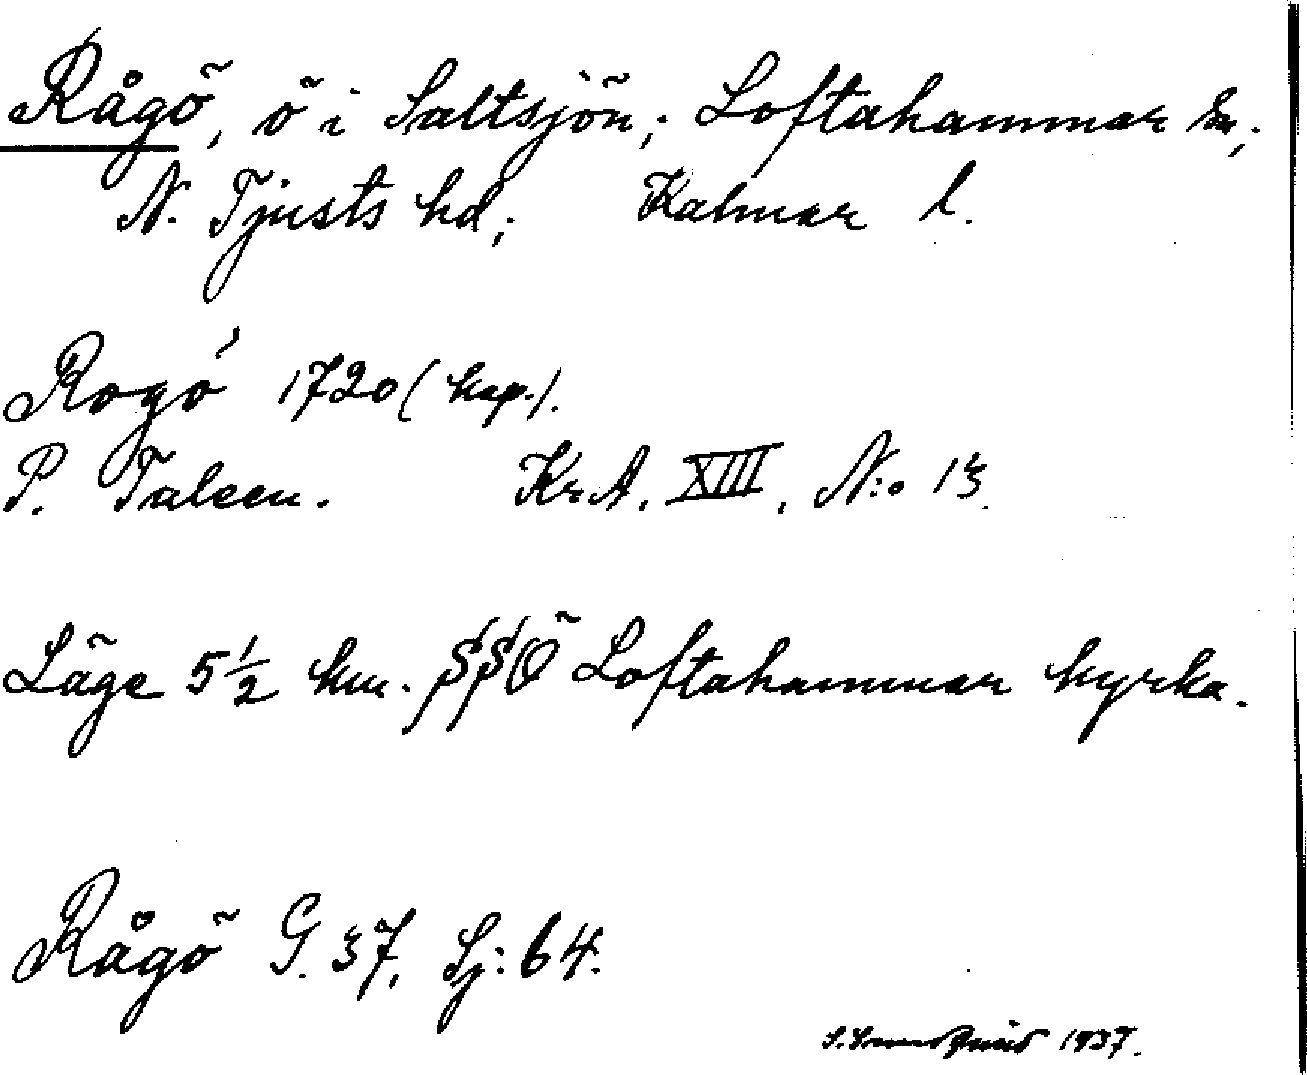 Rågö, ö i Saltsjön; Loftahammar sn;
N. Tjusts hd; Kalmar l.
Rogö 1720 (kap.).
P. Taleen. Kr.A. XIII, N:o 13.
Läge 5 1/2 km. SSÖ Loftahammar kyrka.
Rågö G. 37, Sj: 64.
1937.